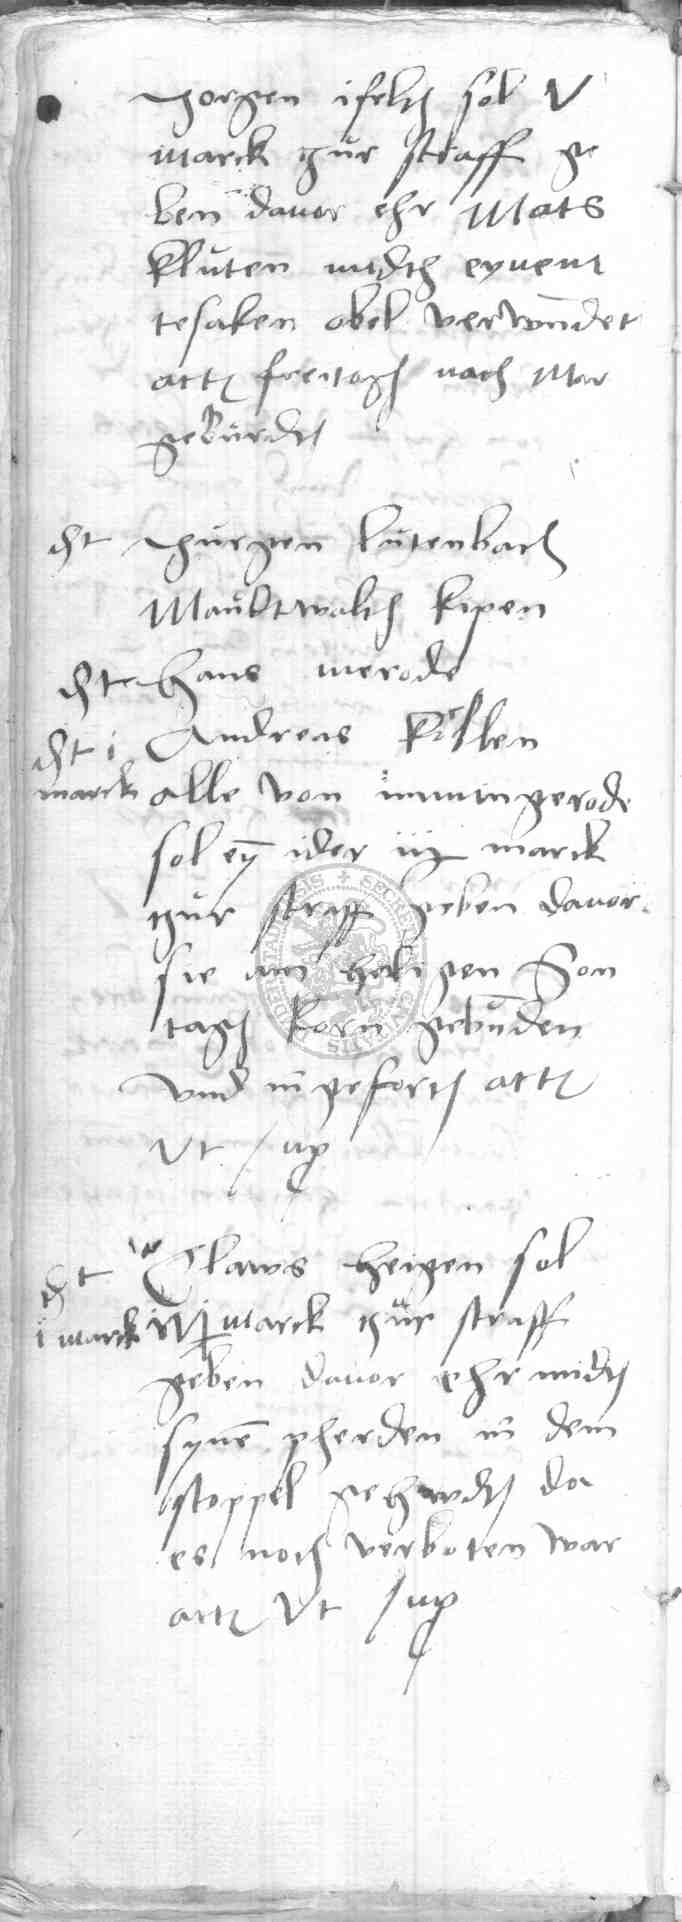 Jorgen ifelth sol V
marck zur straff ge
ben davor ehr Mats
Kluten midth eynem
tesaken obel verwundet
actum freitagh nach Mar
geburdth
dt Jurgen lutenbach
Mandtwalth kipen
dt Hans merode
dt i Andreas Killen
marck alle von immingerode
sol eyn ider iiij marck
zur straff geben davor
sie am heligen Son
tagh korn gebunden
vnd ingeforth actum
vt sup
dt Claws heigen sol
i marck marck zur straff
geben davor ehr midth
synen pherden in dem
stoppel gehudth da
es noch verboten war
actum vt sup